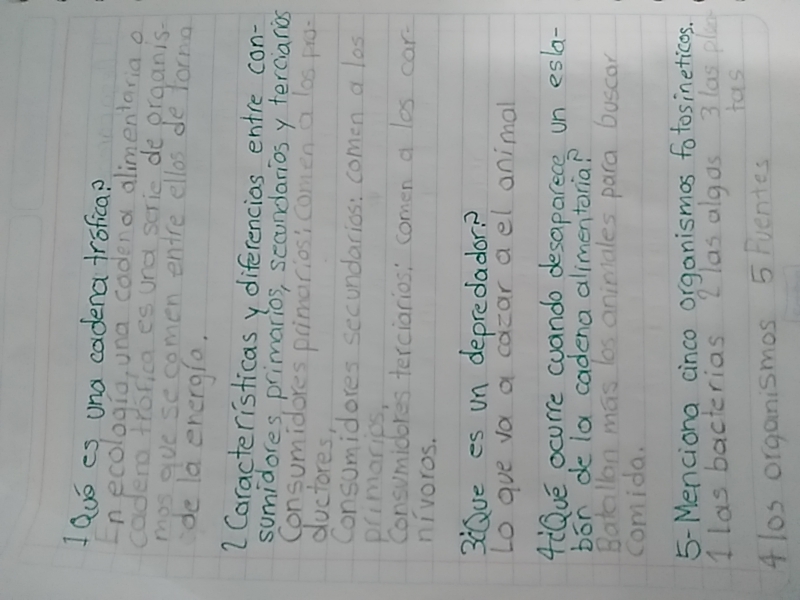 1 Qué es una cadena trófica?
En ecología, una cadena alimentaria o
cadena trófica es una serie de organis-
mos que se comen entre ellos de forma
de la energía.
2 Características y diferencias entre con-
sumidores primarios, secundarios y terciarios
Consumidores primarios: comen a los pro-
ductores,
Consumidores secundarios: comen a los
primarios,
Consumidores terciarios: comen a los car-
nívoros.
3¿Que es un depredador?
Lo que va a cazar a el animal
4¿Qué ocurre cuando desaparece un esla-
bón de la cadena alimentaria?
Batallan más los animales para buscar
comida.
5-Menciona cinco organismos fotosineticos.
1 las bacterias 2 las algas 3 las plan
tas
4 los organismos 5 Fuentes